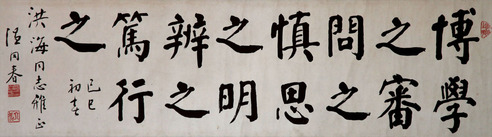 博學
之審
問之
慎思
之明
辨之
篤行
之
己巳
初春
洪海同志雅正
同春